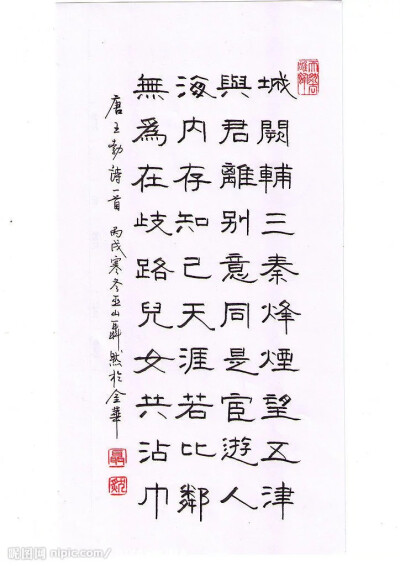 城闕輔三秦烽煙望五津
與君離别意同是宦遊人
海内存知己天涯若比鄰
無爲在歧路兒女共沾巾
唐王勃詩一首 丙戌寒冬巫山聶然於金華
昵图网 nipic.com